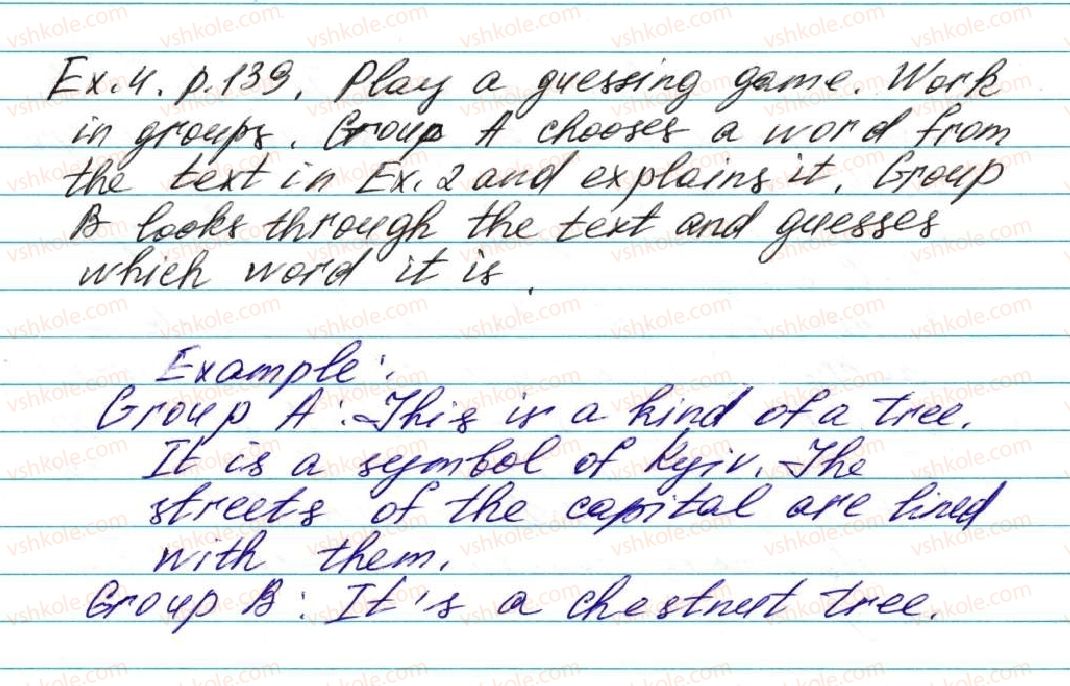 Ex. 4. p. 139. Play a guessing game. Work
in groups. Group A chooses a word from
the text in Ex. 2 and explains it. Group
B looks through the text and guesses
which word it is.
Example:
Group A: This is a kind of a tree.
It is a symbol of Kyiv. The
streets of the capital are lined
with them.
Group B: It's a chestnut tree.